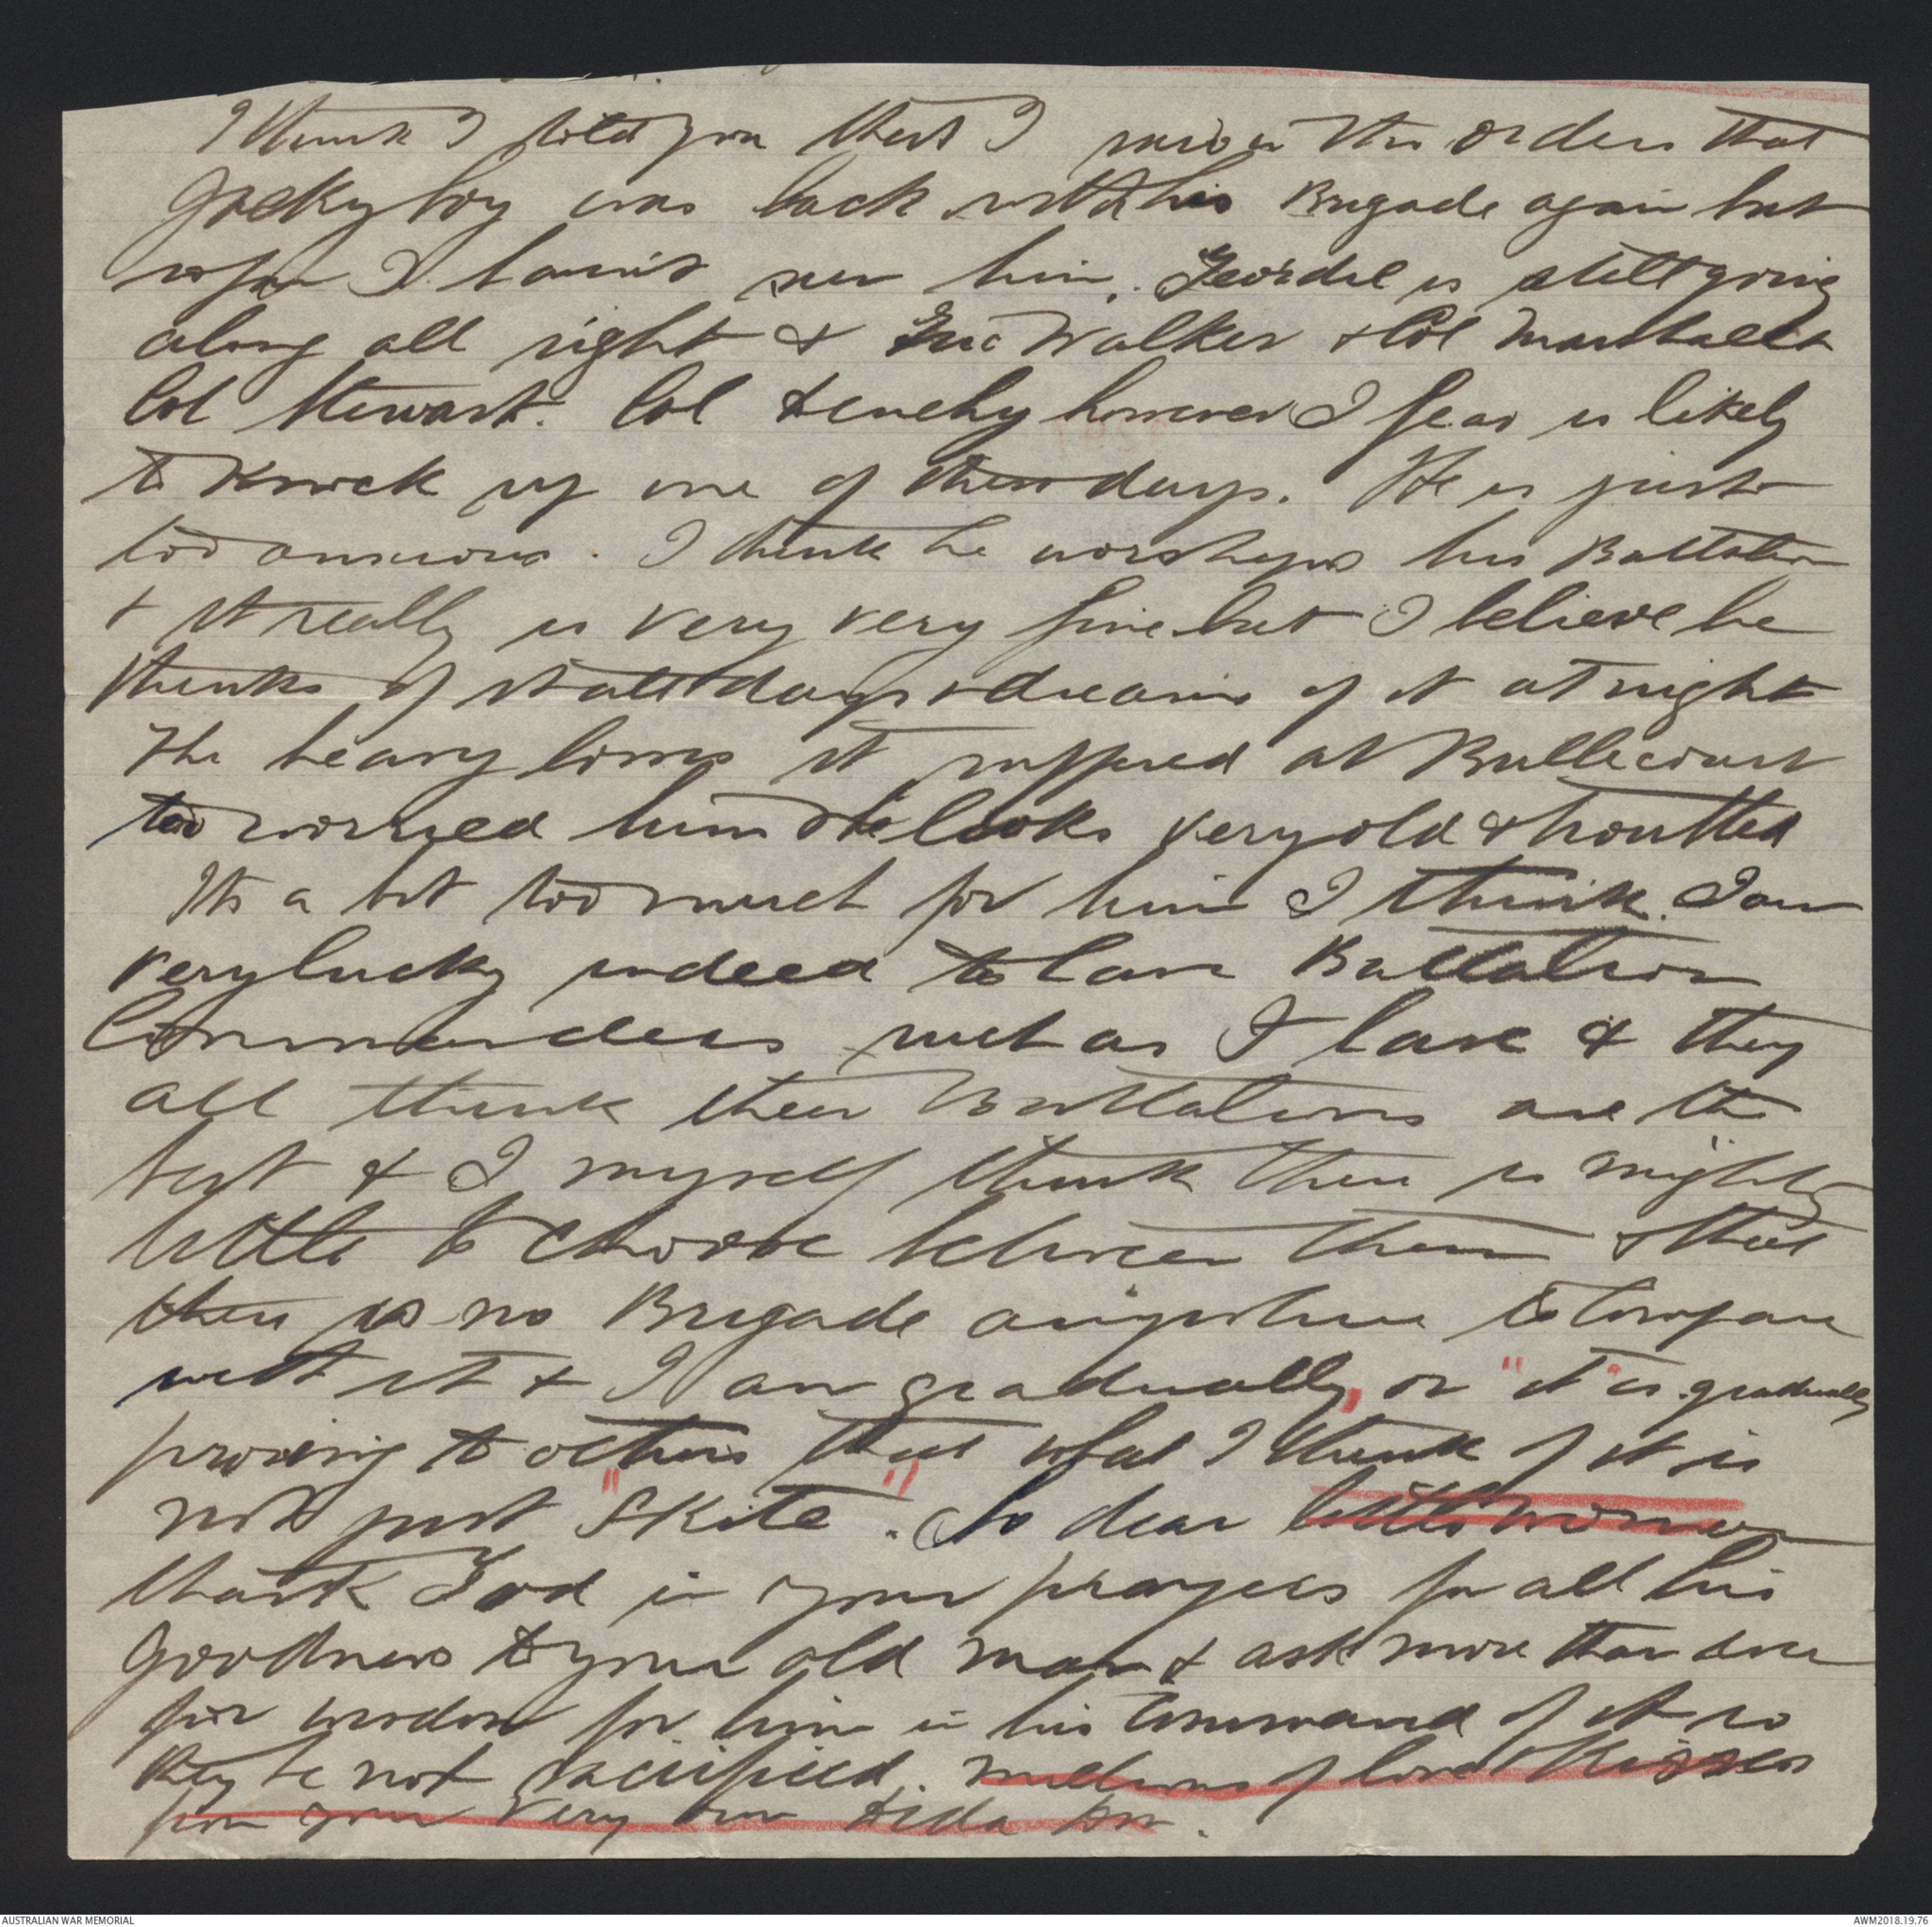 I think I told you that I saw in the orders that
Jacky boy was back with his Brigade again but
so far I haven't seen him. Geordie is still going
along all right & Walker & Col Marshall &
Col Stewart. Col Denehy however I fear is likely
to knock up one of these days. He is just
too anxious. I think he worships his Battalion
& it really is very very fine but I believe he
thinks of it all day & dreams of it at night
The heavy losses it suffered at Bullecourt
too worried him & he looks very old &
Its a bit too much for him I think. I am
very lucky indeed to have Battalion
Commanders such as I have & they
all think their Battalions are the
best & I myself think there is mighty
little to choose between them & that
there is no Brigade anywhere to compare
with it & I am gradually, or "it" is gradually
proving to others that what I think of it is
not just "Skite". So dear little woman
thank God in your prayers for all his
goodness to your old man & ask more than ever
for wisdom for him in his command of it so
they be not sacrificed. millions of love & kisses
from your very own
AUSTRALIAN WAR MEMORIAL
AWM2018.19.76